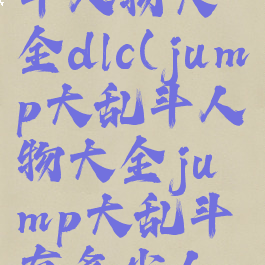 斗人物大
全dlc(jum
p大乱斗人
物大全ju
mp大乱斗
有多少人